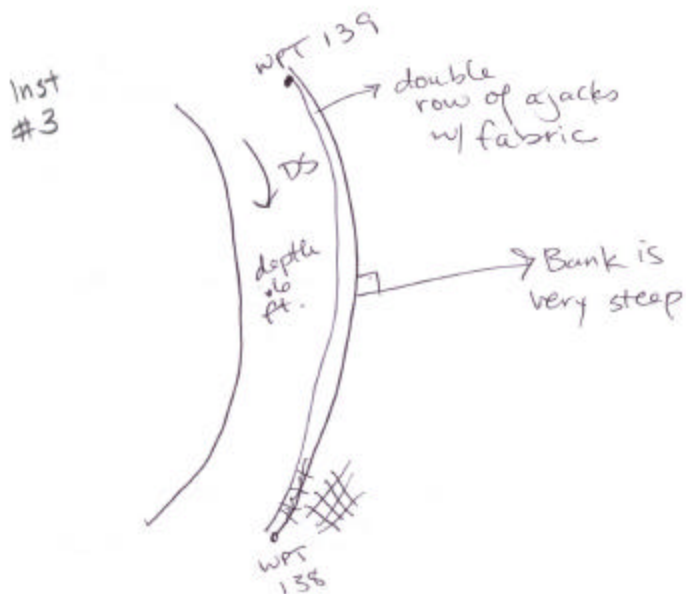 WPT 139
Inst
#3
double
row of ajacks
w/ fabric
DS
depth
.6
ft.
Bank is
very steep
WPT
138